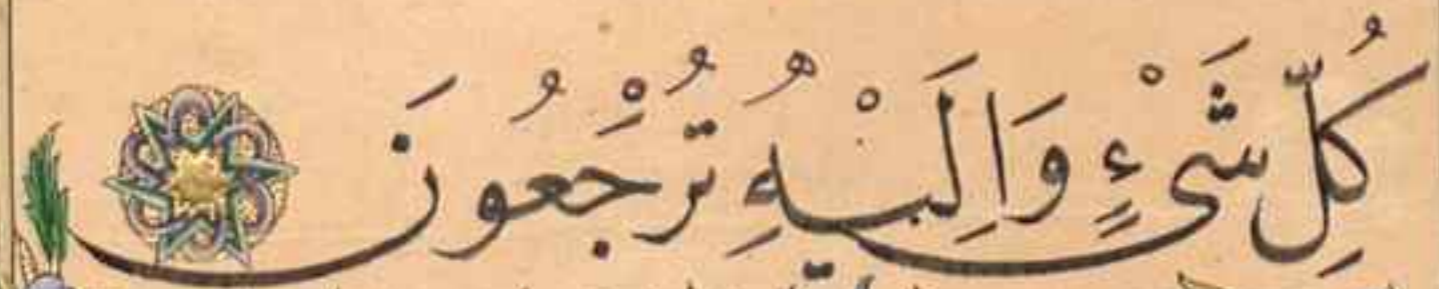 كُلِّ شَيْءٍ وَاِلَيْهِ تُرْجَعُونَ